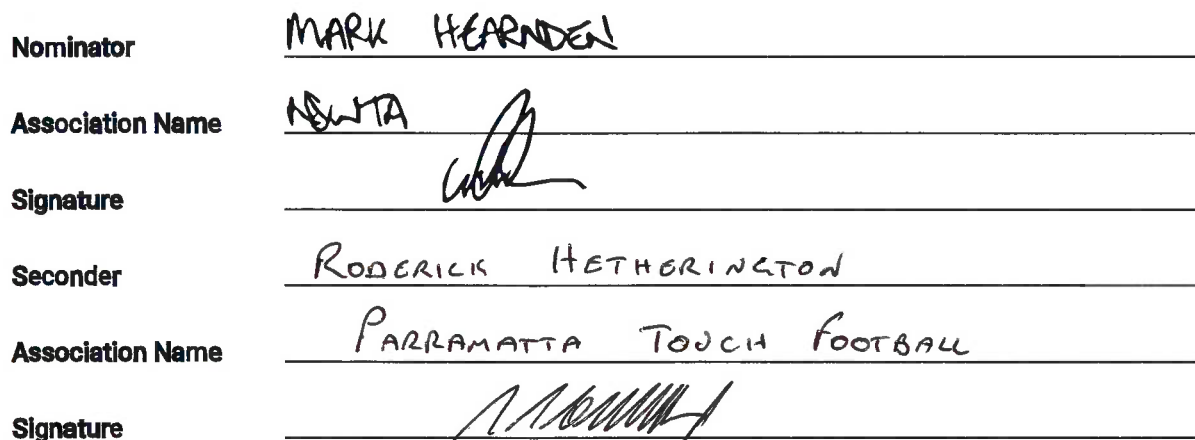 Nominator MARK HEARNDEN
Association Name NSWTA
Signature
Seconder RODERICK HETHERINGTON
Association Name PARRAMATTA TOUCH FOOTBALL
Signature